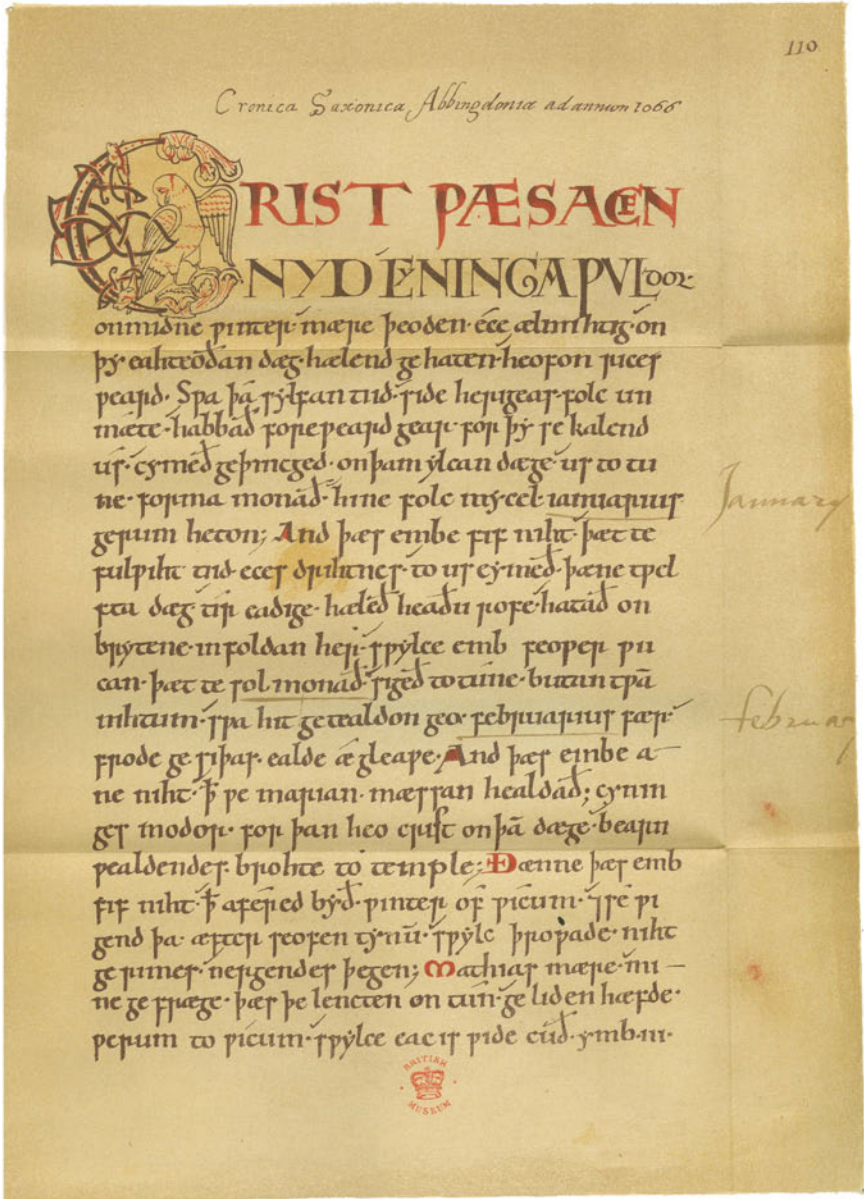 110
Cronica Saxonica Abbingdoniæ ad annum 1066
CRIST ǷÆS ACEN
NYD CYNINGA ǷVLDOR
onmidne ƿinter· mære þeoden· éce ælmihtig· on
þy· eahteoðan dæg· hælend ge haten· heofon rices
ƿeard· Sƿa þā sylfan tiid· side herigeas· folc un
mæte· habbað foreƿeard gear· for þy se kalend
us· cymeð geþincged· onþam ylcan dæge· us to tu
ne· forma monað· hine folc mycel· ianuarius
gerum heton; And þæs embe fif niht· þæt te
fulƿiht tiid· eces drihtnes· to us cymeð· þæne tƿel
fta dæg· tir eadige· hæleð heaðu rofe· hatað on
brytene· in foldan her· sƿylce emb feoƿer ƿu
can· þæt te sol monað· sigeð to tune· butan tƿā
nihtum· sƿa hit getealdon geo· februarius fær·
frode ge siþas· ealde ǽ gleaƿe· And þæs embe a
ne niht· ꝥ ƿe marian· mæssan healdað; cynin
ges modor· for þan heo crist onþā dæge· bearn
ƿealdendes· brohte to temple; Ðænne þæs emb
fif niht· ꝥ afered byð· ƿinter of ƿicum· ⁊se ƿi
gend þa· æfter seofen tynū· sƿylc þroƿade· niht
ge rimes· nergendes þegen; Mathias mære· mi
ne ge fræge· þæs þe lencten on tun· ge liden hæfde·
ƿerum to ƿicum· sƿylce eac is ƿide cuð· ymb·iii·
January
februar
BRITISH
MUSEUM